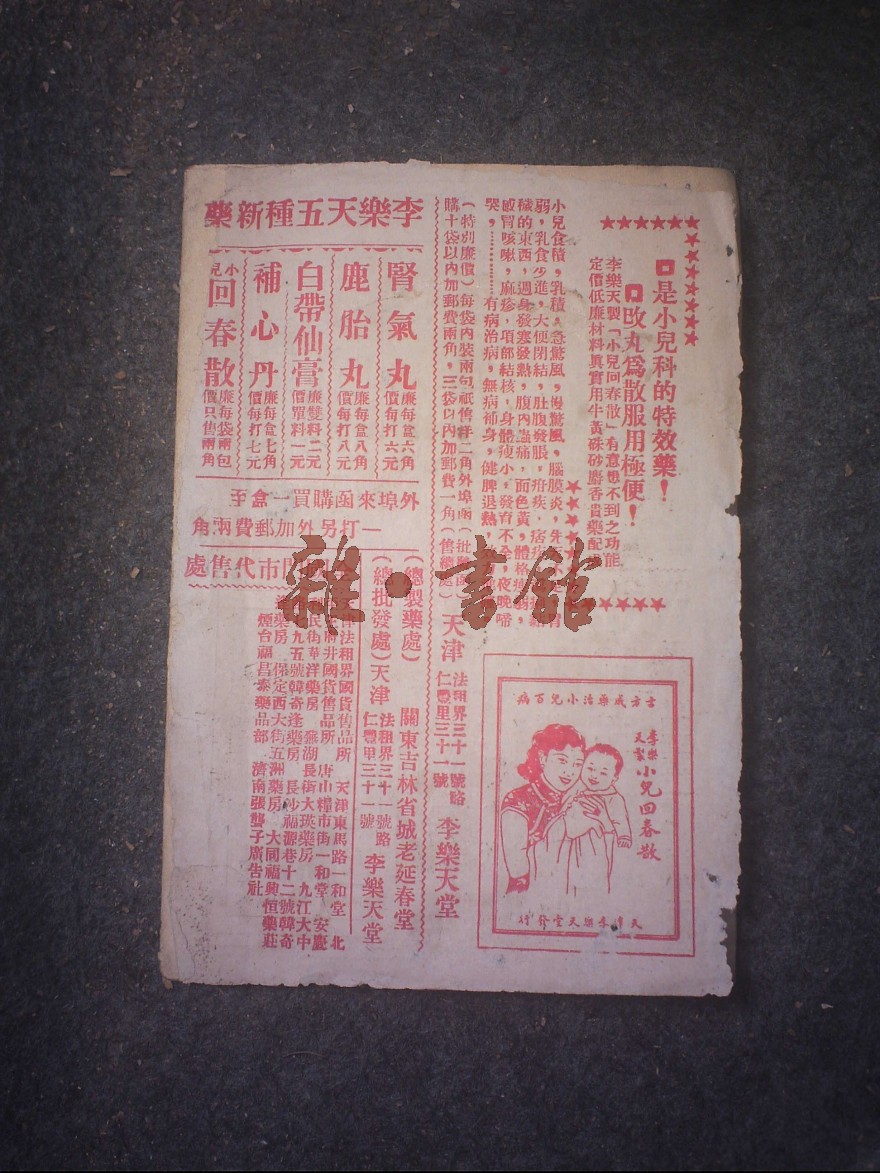 □是小兒科的特效藥！
□改丸爲散服用極便！
李樂天製「小兒回春散」有意想不到之功能
定價低廉材料眞實用牛黃硃砂麝香貴藥配
小兒食積，乳積，急驚風，慢驚風，腦膜炎，先
弱，乳食少進，大便閉結，肚腹發脹，疳疾，
穢的東西，週身發寒發熱，腹內蟲痛，面色黃，體格
感冒咳嗽，麻疹，項部結核，身體瘦小，發育不全，夜晚啼
哭，…………有病治病，無病補身，健脾退熱
（特別廉價）每袋內裝兩包祇售洋二角外埠函
購十袋以內加郵費兩角，三袋以內加郵費一角
天津
法租界三十一號路
仁豐里三十一號
李樂天堂
（總製藥處）
關東吉林省城老延春堂
（總批發處）
天津
法租界三十一號路
仁豐里三十一號
李樂天堂
李樂天五種新藥
腎氣丸
廉每盒六角
價每打六元
鹿胎丸
廉每盒八角
價每打八元
白帶仙膏
廉雙料二元
價單料一元
補心丹
廉每盒七角
價每打七元
小兒
回春散
廉每袋兩包
價只售兩角
外埠來函購買一盒至
一打另外加郵費兩角
門市代售處
法租界國貨售品所 天津東馬路一和堂 北
井國貨售品所 唐山糧市街一和堂 安慶
民街華洋藥房 蕪湖長街大瑛藥房 九江大中
九五號韓奇逢藥房 長沙福源巷十二號韓奇
藥房 保定西大街五洲藥房 大同福興恒藥莊
煙台福昌泰藥品部 濟南張聾子廣告社
古方成藥治小兒百病
李樂天製
小兒回春散
天津李樂天堂發行
雜·書館